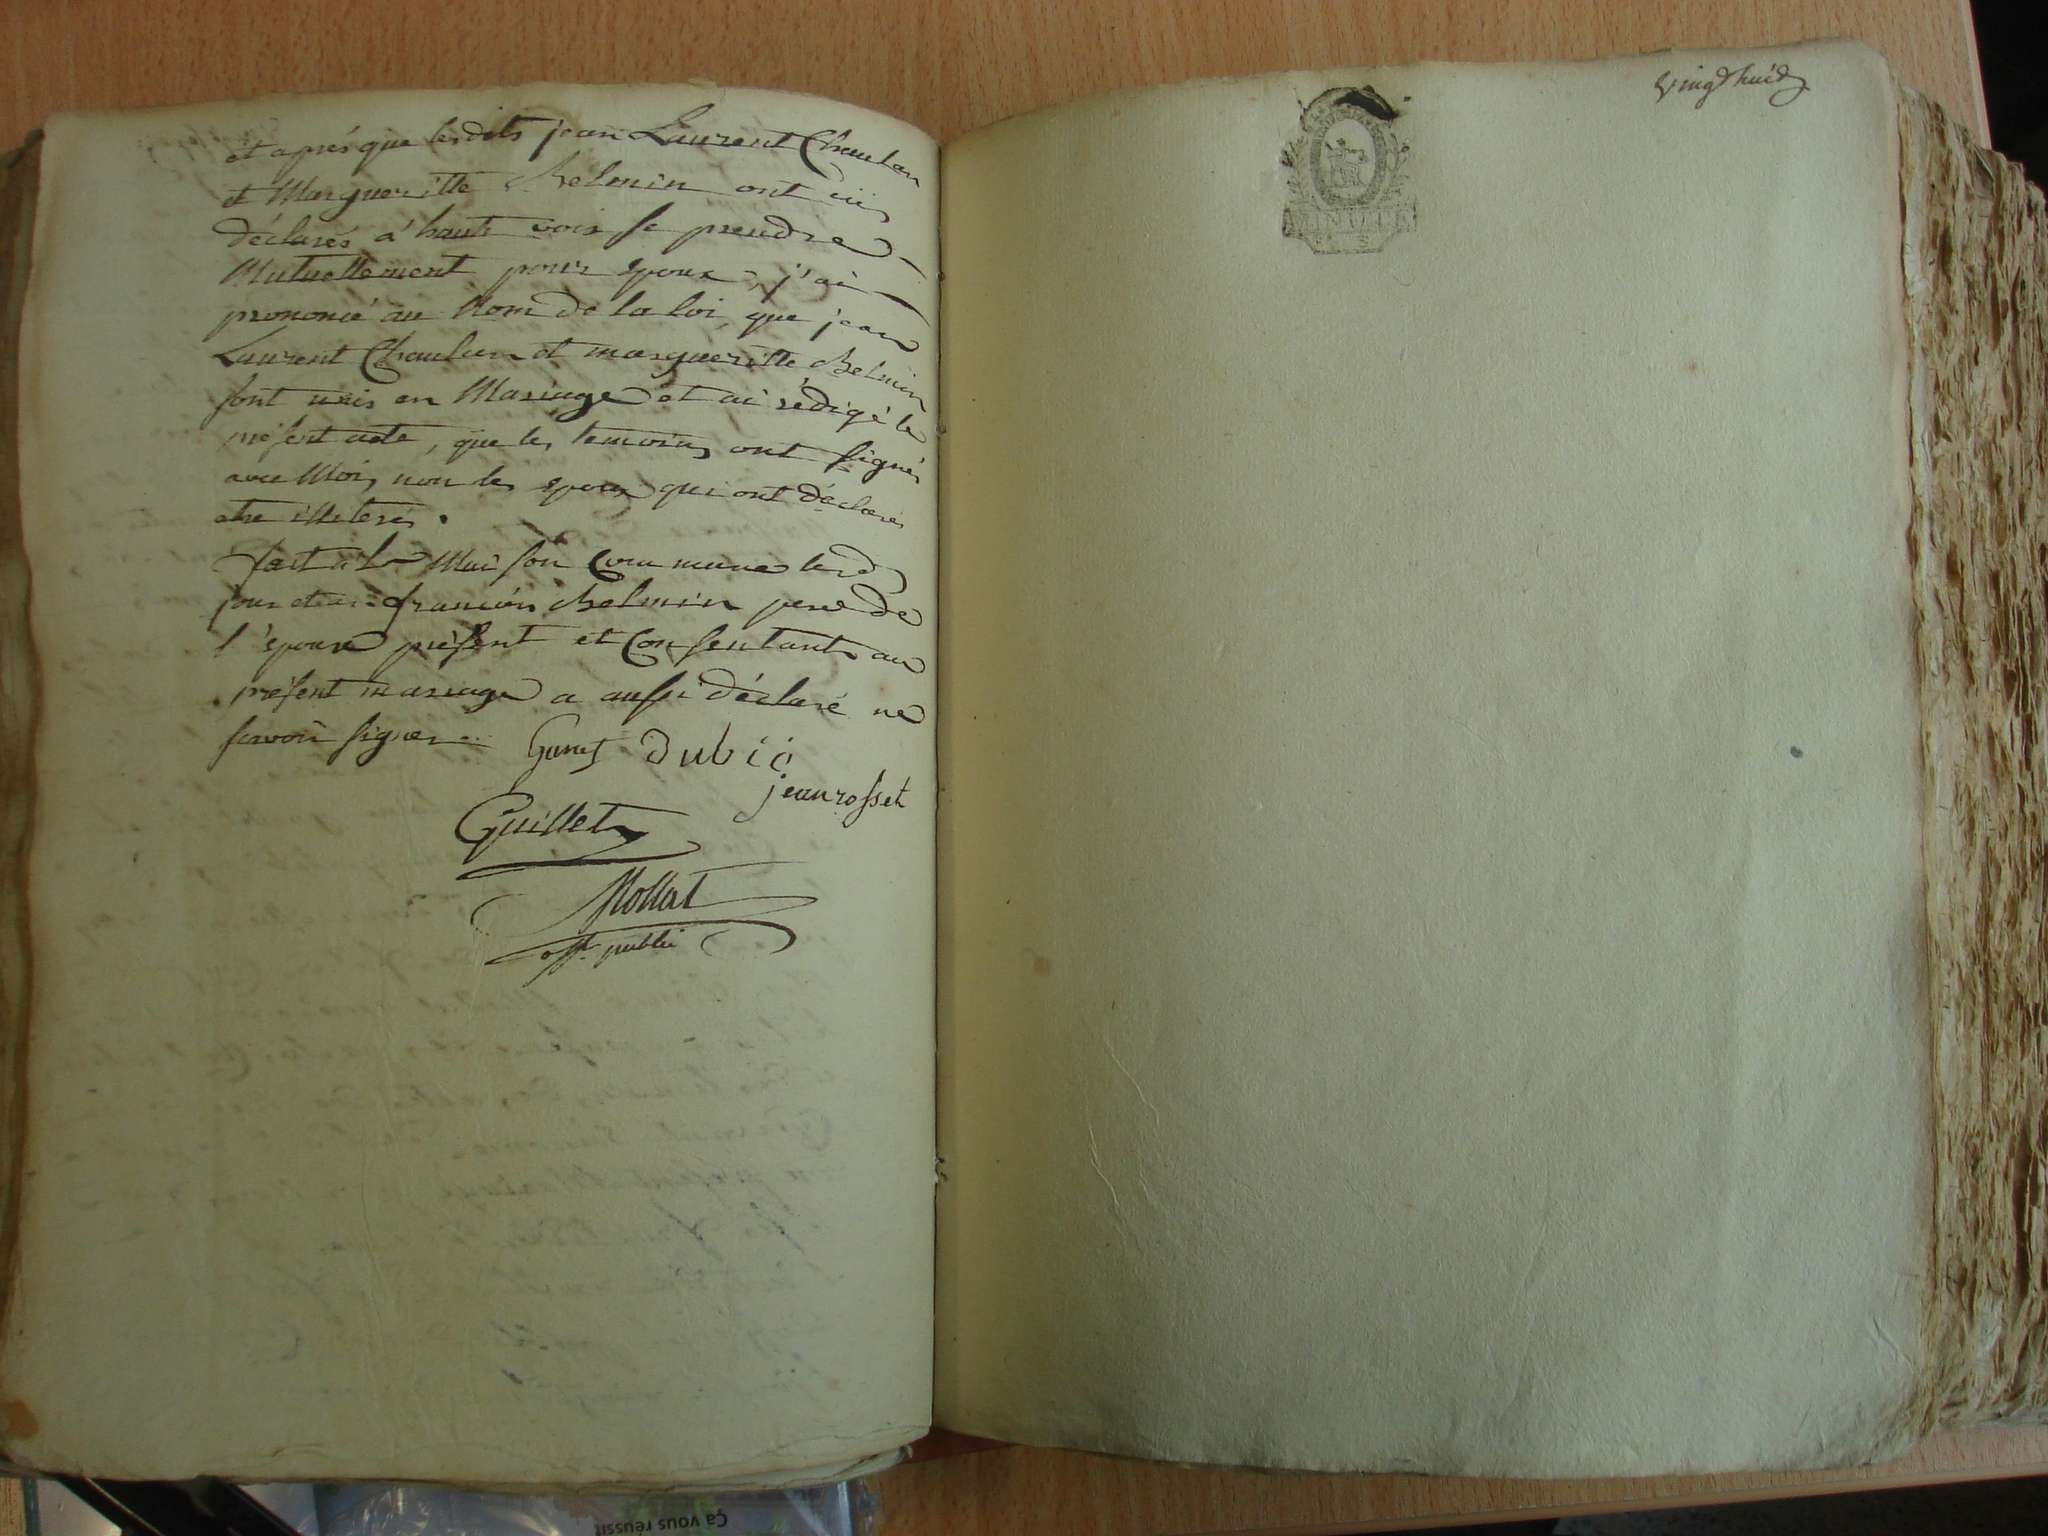 et après que lesdits jean Laurent Chaulan
et Margueritte Belmin ont eüs
déclarés a haute voix se prendre
Mutuellement pour epoux, j'ai
prononcé au Nom de la loi, que jean
Laurent Chaulan et margueritte Belmin
sont unis en Mariage et ai rédigé le
présent acte, que les temoins ont signés
avec Moi, non les epoux qui ont déclarés
etre illiterés.
fait à la Maison Commune lesd
jour et an françois Belmin pere de
l'épouse présent et Consentant au
présent mariage a aussi déclaré ne
scavoir signer
dubie
jean rosset
Guillet
Mollat
off. public
vingt huit
Ça vous réussit